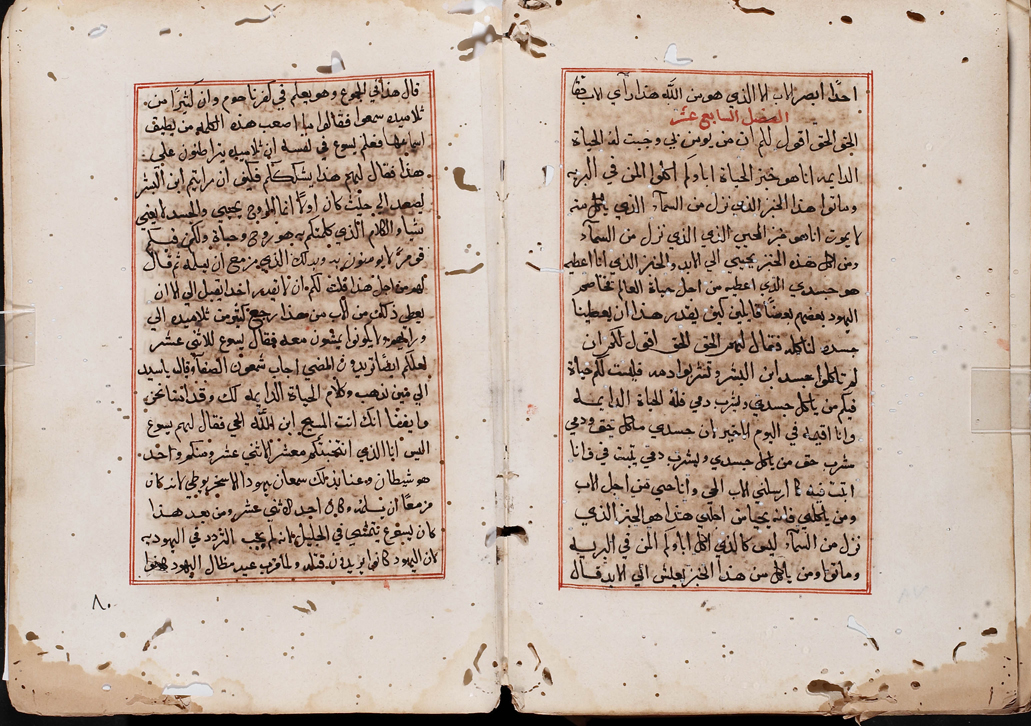 احدا ابصر الاب الا الذي هو من الله هذا رآي الاب فقط
الفصل السابع عشر
الحق الحق اقول لكم ان من يومن بي وجبت له الحياة
الدايمه انا هو خبز الحياة اباوكم اكلوا المن في البريه
وماتوا هذا الخبز الذي نزل من السمآء الذي ياكل منه
لا يموت انا هو خبز الحي الذي الذي نزل من السمآء
ومن اكل هذه الخبز يحيي الي الابد والخبز الذي انا اعطيه
هو جسدي الذي اعطيه من اجل حياة العالم فخاصم
اليهود بعضهم بعضا قايلين كيف يقدر هذا ان يعطينا
جسده لناكله فقال لهم الحق الحق اقول لكم ان
لم تاكلوا جسد ابن البشر وتشربوا دمه فليست لكم حياة
فيكم من ياكل جسدي ويشرب دمي فله الحياة الدايمه
وانا اقيمه في اليوم الاخير ان جسدي ماكل حق ودمي
مشرب حق من ياكل جسدي ويشرب دمي يثبت في وانا
اثبت فيه كما ارسلني الاب الحي وانا حي من اجل الاب
ومن ياكلني فانه يحيا من اجلي هذا هو الخبز الذي
نزل من السمآء ليس كالذي اكل اباوكم المن في البريه
وماتوا ومن ياكل من هذا الخبز يعيش الي الابد قال
قال هذا في المجمع وهو يعلم في كفرناحوم وان كثيرا من
تلاميذه سمعوا فقالوا ما اصعب هذه الكلمه من يطيق
استماعها فعلم يسوع في نفسه ان تلاميذه يتراطنون علي
هذا فقال لهم هذا يشكككم فكيف ان رايتم ابن البشر
يصعد الي حيث كان اولا انما الروح يحيي والجسد لا يغني
شيا والكلام الذي كلمتكم به هو روح وحياة ولكن فيكم
قوم لا يومنون به وبذلك الذي مزمع ان يسلمه ثم قال
لهم من اجل هذا قلت لكم ان لا يقدر احد يقبل الي الا ان
يعطي ذلك من الاب من هذا رجع كثير من تلاميذه الي
ورايهم ولا يكونوا يمشون معه فقال يسوع للاثني عشر
لعلكم ايضا تريدون المضي اجاب شمعون الصفا وقال يا سيد
الي من نذهب وكلام الحياة الدايمه لك وقد امنا نحن
وايقنا انك انت المسيح ابن الله الحي فقال لهم يسوع
اليس انا الذي انتخبتكم معشر الاثني عشر ومنكم واحد
هو شيطان وعنا بذلك سمعان يهودا الاسخريوطي لانه كان
مزمعا ان يسلمه وكان احد الاثني عشر ومن بعد هذا
كان يسوع يتمشي في الجليل لانه لم يحب التردد في اليهوديه
لان اليهود كانوا يريدون قتله ولما قرب عيد مظال اليهود
٨٠